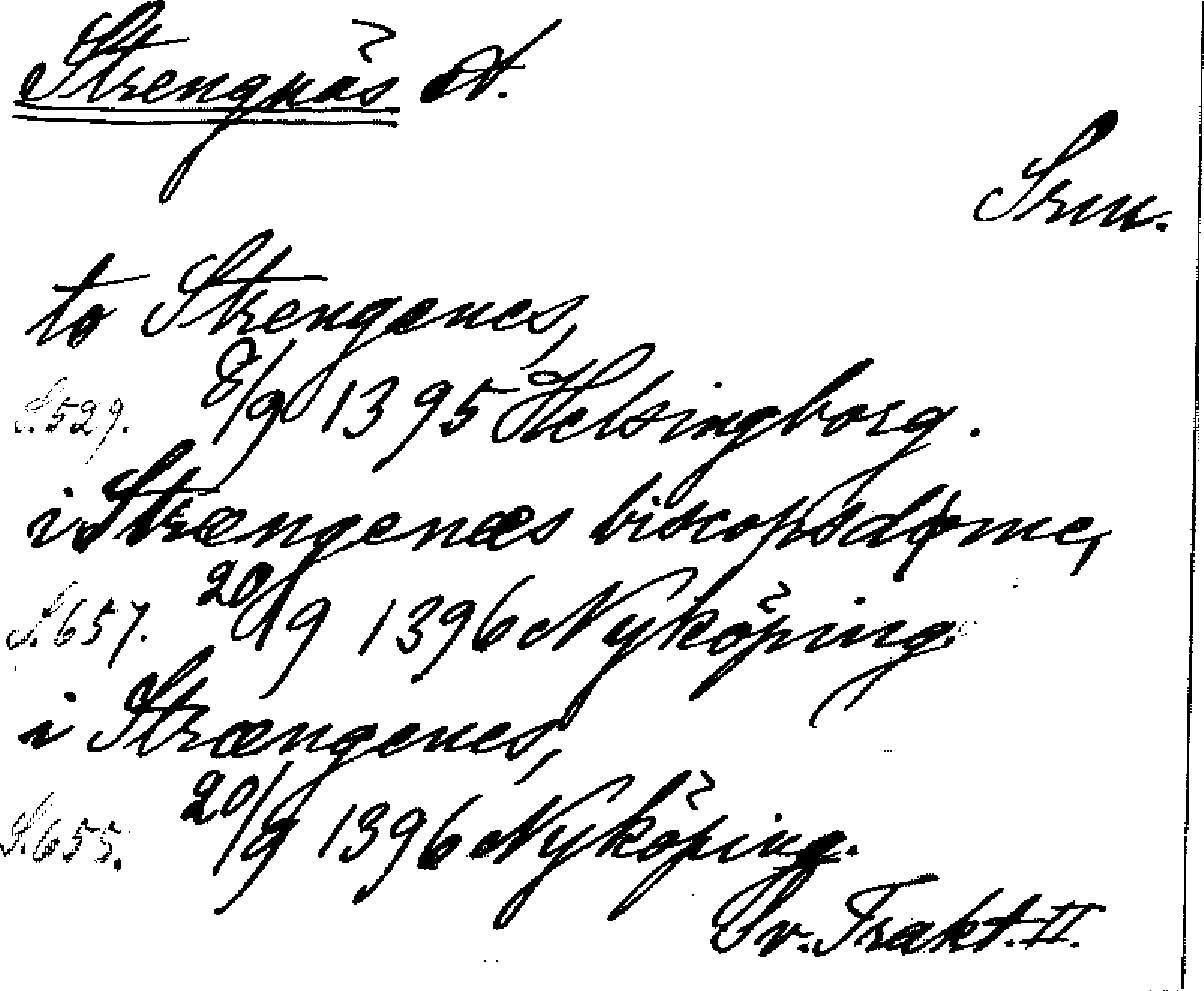 Strengnäs st.
Srm.
to Strengenes,
S.529. 8/9 1395 Helsingborg.
i Strængenæs biscopsdøme,
S.657. 20/9 1396 Nyköping.
i Strængenes,
S.655. 20/9 1396 Nyköping.
Sv. Trakt. II.